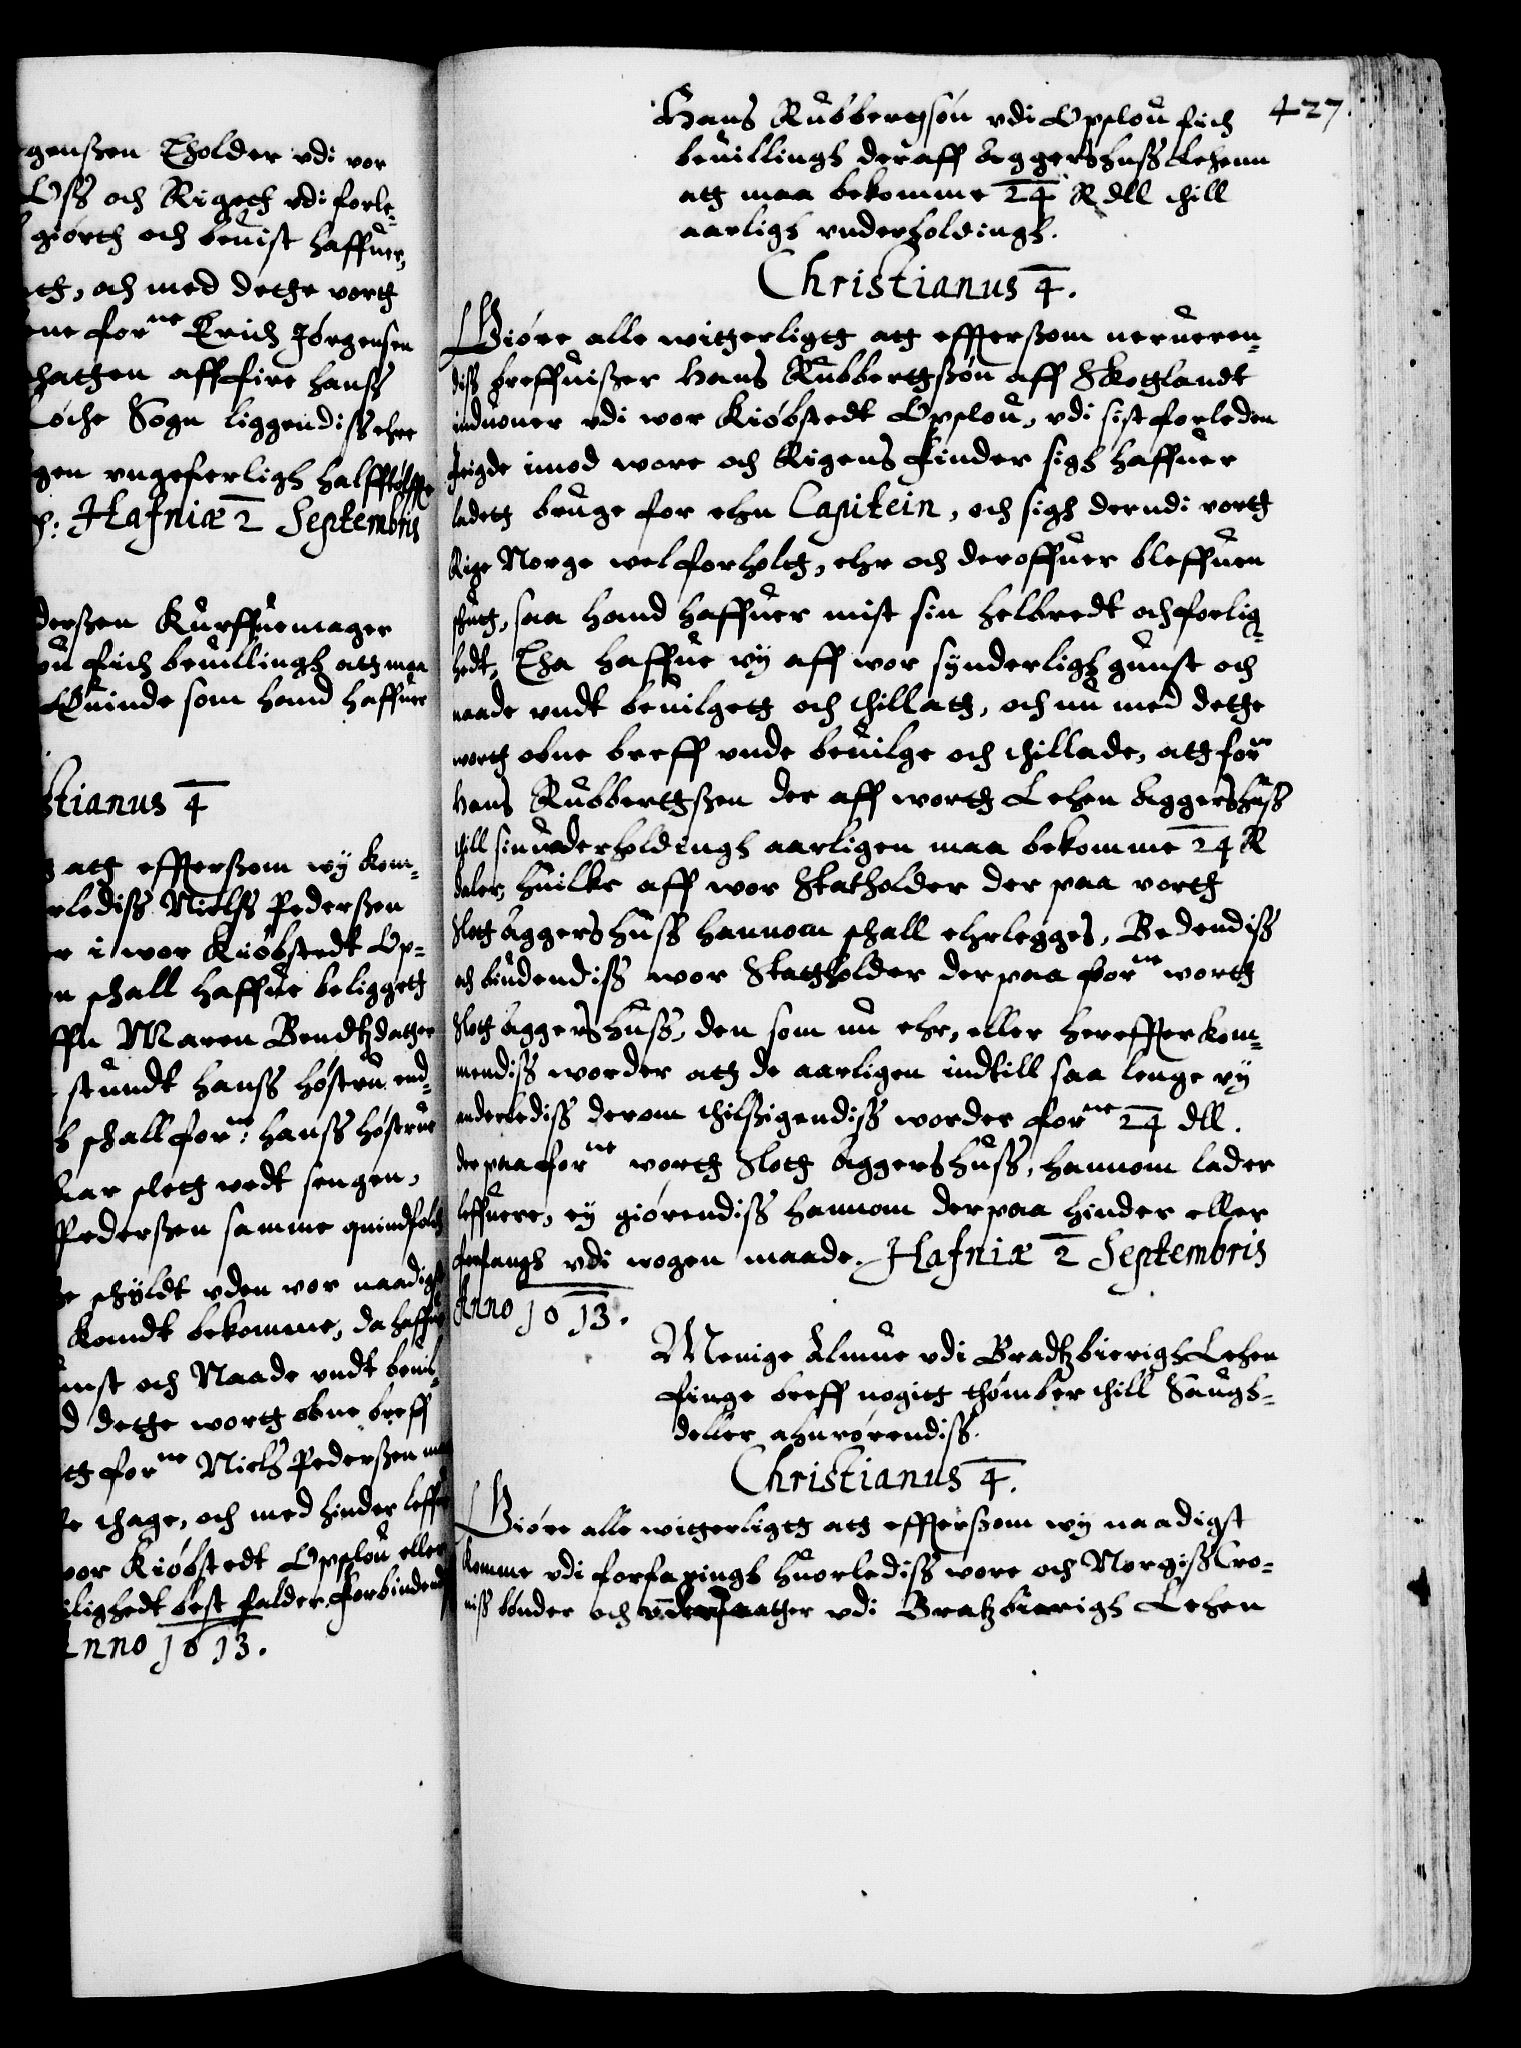 genßen Tholder vdi vor
Oss och Rigeth vdi forle-
giørth och beuist haffuer,
th, och med dethe vorth
ne forne Erich Jørgensen
thathen aff fire hanss
Sogn liggendiss ehre
gen vngeferligh halfftølffte
Hafniæ 2 Septembris
derßen Kurffuemager
ou fich beuillingh ath maa
Quinde som hand haffuer
stianus 4
ath effterßom wy kom-
rlediss Nielss Pederßen
r i wor Kiøbstedt Op-
n schall haffue beliggeth
Maren Bendtzdather
stundt hanss høstru end-
schall forne: hanss høstrue
sleth wedt sengen,
Pederßen samme quindfolch
schyldt vden vor naadigst
komdt bekomme, da haffue
unst och Naade vndt beuil-
d dethe worth obne breff
th forne Niels Pederßen maa
thage, och med hinder leffue
vor Kiøbstedt Opslou eller
lighedt best falder, forbindendiss
Anno 1613.
427.
Hans Rubbertsøn vdi Opslou fich
beuillingh deraff Aggershuss Lehenn
ath maa bekomme 24 R dll thill
aarligh vnderholdingh.
Christianus 4.
Giøre alle witherligth ath effterßom nerueren-
diss breffuißer Hans Rubberthßøn aff Skotlandt
induoner vdi wor Kiøbstedt Opslou, vdi sist forleden
feigde imod wore och Rigens fiender sigh haffuer
ladeth bruge for ehn Capitein, och sigh derudi vorth
Rige Norge wel forholth, ehr och deroffuer bleffuen
schuth, saa hand haffuer mist sin helbredt och forlig-
hedt, Tha haffue wy aff wor synderligh gunst och
naade vndt beuilgeth och thillath, och nu med dethe
worth obne breff vnde beuilge och thillade, ath forne
Hans Rubberthßen der aff worth Lehen Aggershuss
thill sin underholdingh aarligen maa bekomme 24 R
daler, huilke aff wor Statholder der paa vorth
Sloth Aggershuss hannom schall ehrlegges, Bedendiss
och biudendiss wor Stathholder der paa forne worth
Sloth Aggershuss, den som nu ehr, eller hereffter kom-
mendiss worder ath de aarligen indtill saa lenge wy
anderlediss derom thilsigendiss worder forne 24 dll.
der paa forne worth Sloth Aggershuss, hannom lader
leffuere, ey giørendiss hannom der paa hinder eller
forfangh vdi nogen maade. Hafniæ 2 Septembris
Anno 1613.
Menige Almue vdi Bradtzbierigh Lehen
finge breff nogith thømber thill Saugh-
deller ahnrørendiss.
Christianus 4.
Giøre alle witherligth ath effterßom wy naadigst
komme vdi forfaringh huorlediss wore och Norgiss Cro-
niss bønder och vndersaather vdi Bratzbierigh Lehen